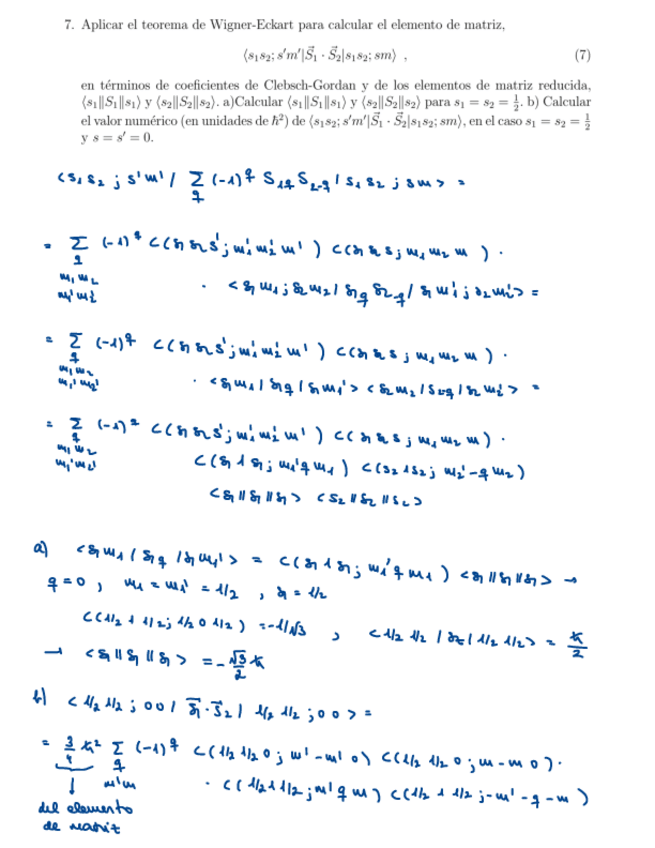 7. Aplicar el teorema de Wigner-Eckart para calcular el elemento de matriz,
⟨s₁s₂; s′m′|S⃗₁ · S⃗₂|s₁s₂; sm⟩ , (7)
en términos de coeficientes de Clebsch-Gordan y de los elementos de matriz reducida,
⟨s₁‖S₁‖s₁⟩ y ⟨s₂‖S₂‖s₂⟩. a)Calcular ⟨s₁‖S₁‖s₁⟩ y ⟨s₂‖S₂‖s₂⟩ para s₁ = s₂ = 1/2. b) Calcular
el valor numérico (en unidades de ħ²) de ⟨s₁s₂; s′m′|S⃗₁ · S⃗₂|s₁s₂; sm⟩, en el caso s₁ = s₂ = 1/2
y s = s′ = 0.
<s₁ s₂ ; s' m' / Σ_q (-1)^q S₁q S₂₋q / s₁ s₂ ; s m> =
= Σ (-1)^q C(s₁ s₂ s'; m₁' m₂' m') C(s₁ s₂ s ; m₁ m₂ m) ·
q
m₁ m₂
m₁' m₂'
· <s₁ m₁ ; s₂ m₂ / S₁q S₂₋q / s₁ m₁' ; s₂ m₂'> =
= Σ (-1)^q C(s₁ s₂ s'; m₁' m₂' m') C(s₁ s₂ s ; m₁ m₂ m) ·
q
m₁ m₂
m₁' m₂'
· <s₁ m₁ / S₁q / s₁ m₁'> <s₂ m₂ / S₂₋q / s₂ m₂'> =
= Σ (-1)^q C(s₁ s₂ s'; m₁' m₂' m') C(s₁ s₂ s ; m₁ m₂ m) ·
q
m₁ m₂
m₁' m₂'
C(s₁ 1 s₁ ; m₁' q m₁) C(s₂ 1 s₂ ; m₂' -q m₂)
<s₁ // S₁ // s₁> <s₂ // S₂ // s₂>
a) <s₁ m₁ / S₁q / s₁ m₁'> = C(s₁ 1 s₁ ; m₁' q m₁) <s₁ // S₁ // s₁> →
q = 0 , m₁ = m₁' = 1/2 , s₁ = 1/2
C(1/2 1 1/2 ; 1/2 0 1/2) = -1/√3 , <1/2 1/2 / S_z / 1/2 1/2> = ħ/2
→ <s₁ // S₁ // s₁> = - √3/2 ħ
b) < 1/2 1/2 ; 0 0 / S⃗₁ · S⃗₂ / 1/2 1/2 ; 0 0 > =
= 3/4 ħ² Σ (-1)^q C(1/2 1/2 0 ; m' -m' 0) C(1/2 1/2 0 ; m -m 0) ·
q
m' m
· C(1/2 1 1/2 ; m' q m) C(1/2 1 1/2 ; -m' -q -m)
↓
del elemento
de matriz